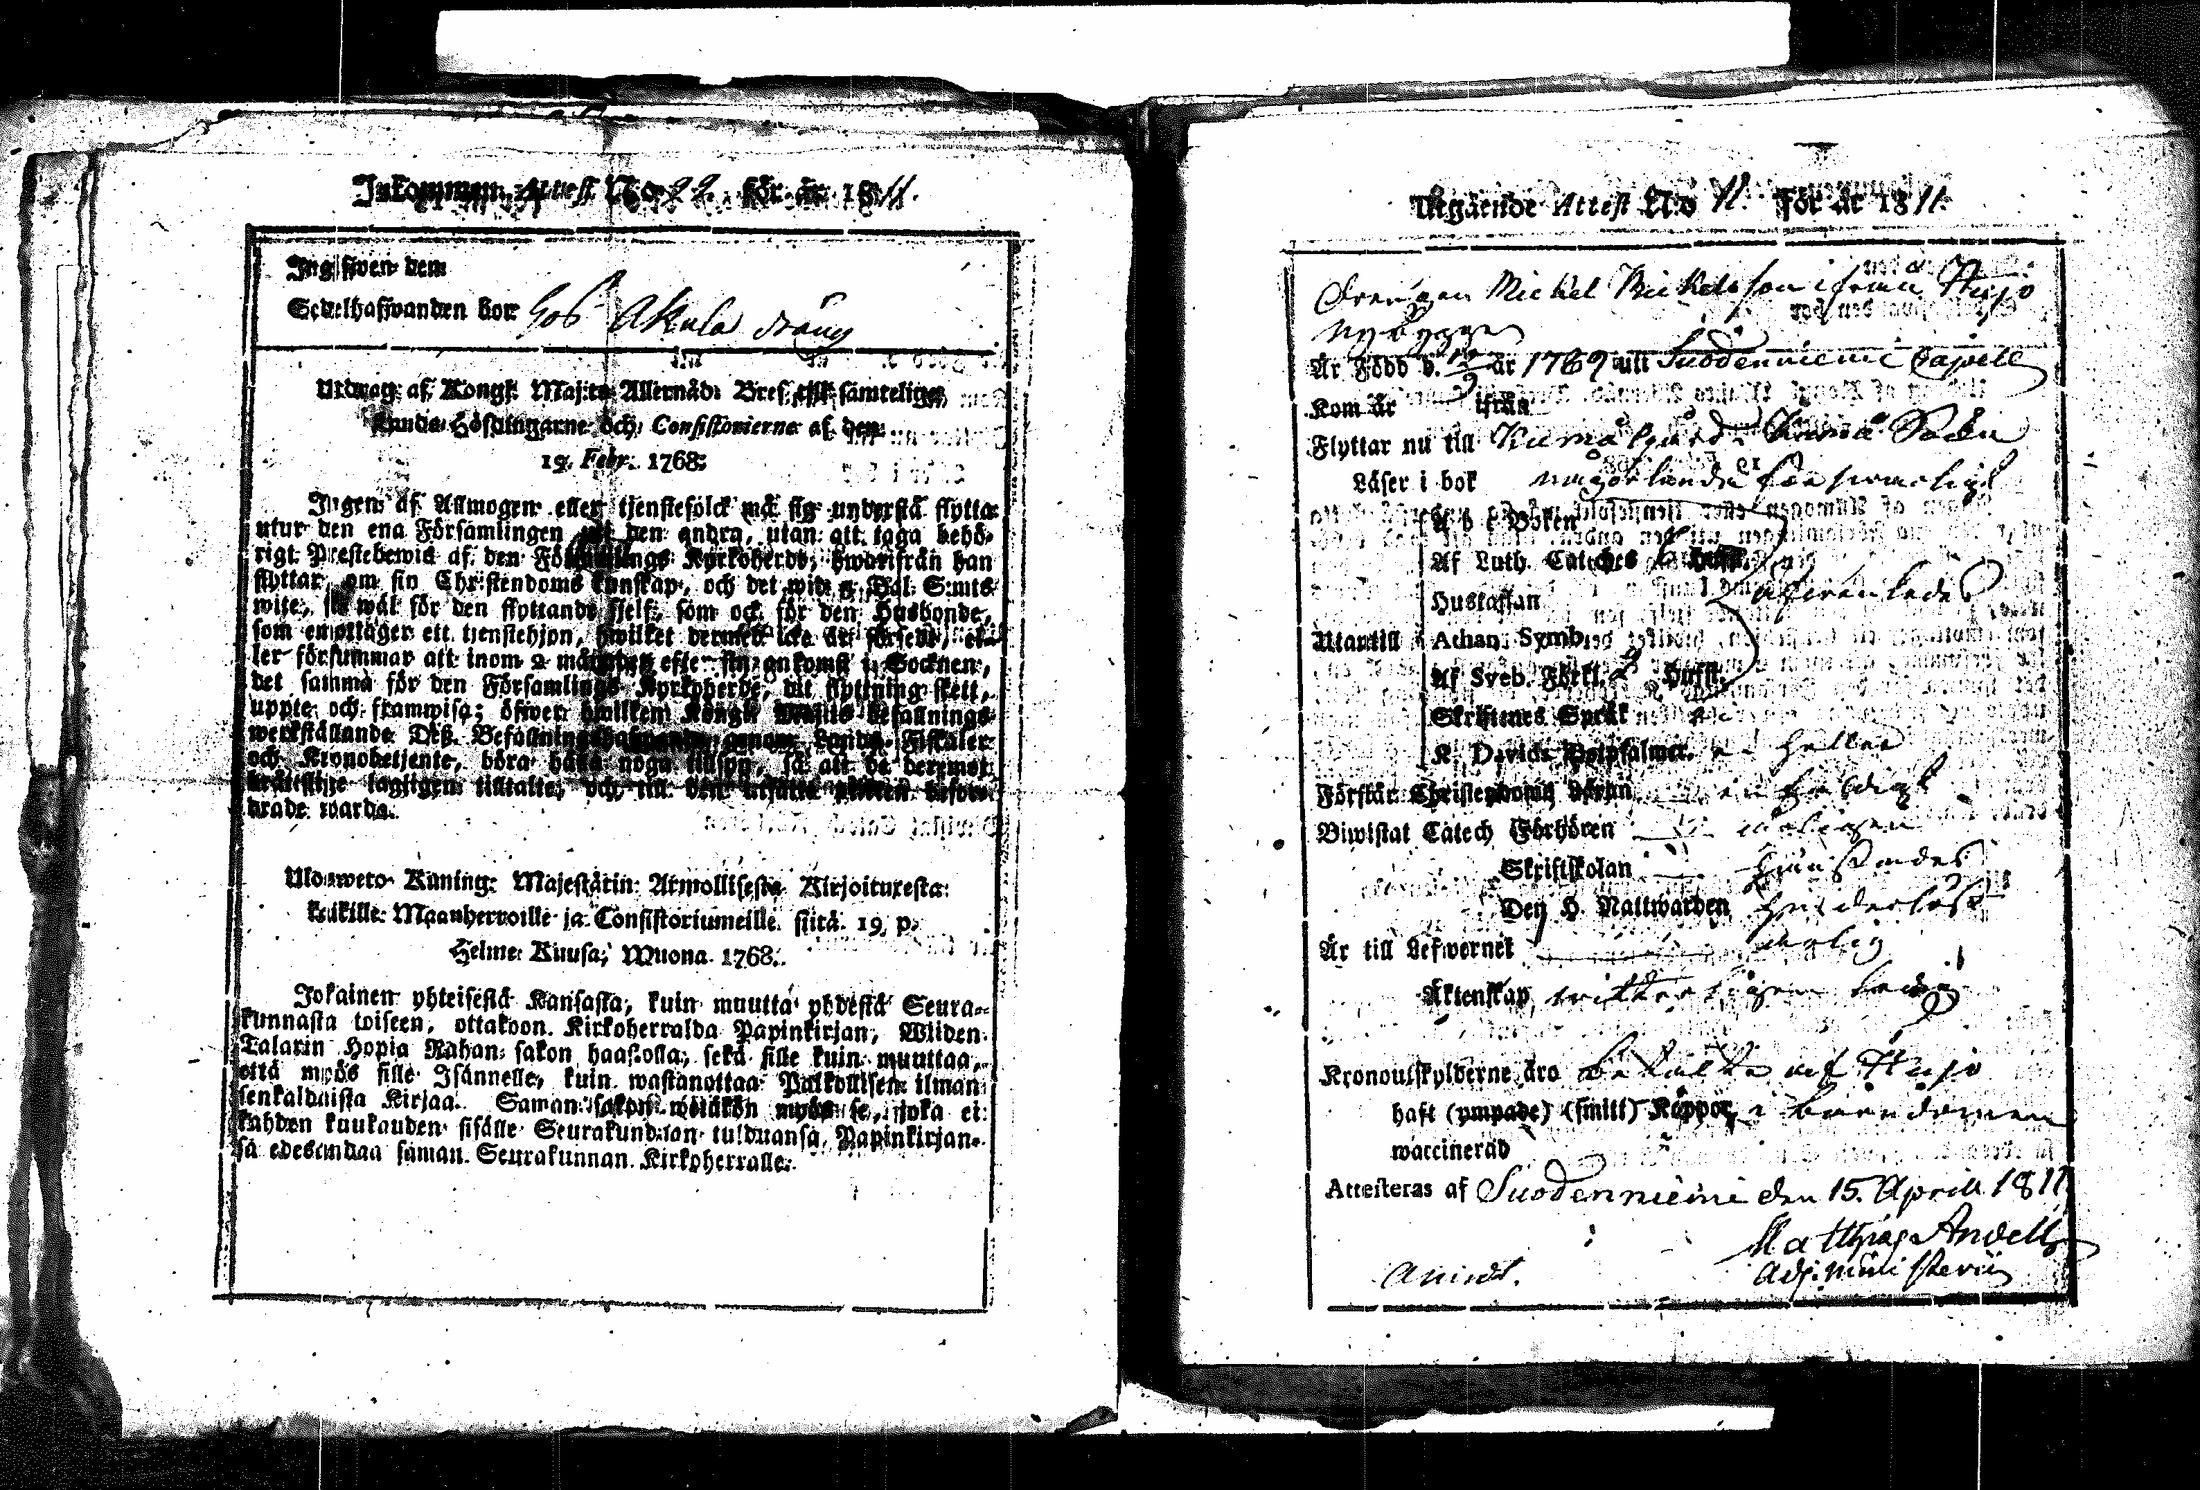 Inkommen Attest No 22. för år 1811.
Ingifwen den
Sedelhafwanden bor hos Akula dräng
Utdrag af Kongl. Maj:ts Allernåd: Bref till samtelige
Lands-Höfdingarne och Consistorierne af den
19. Febr. 1768.
Ingen af Allmogen eller tjenstefolck må sig understå flytta
utur den ena Församlingen uti den andra, utan att taga behö-
rigt Prestebewis af den Församlings Kyrkoherde, hwarifrån han
flyttar, om sin Christendoms kunskap, och det wid 5 Dal. S:mts
wite, så wäl för den flyttande sjelf, som ock för den Husbonde,
som emottager ett tjenstehjon, hwilket dermed icke är försedt, el-
ler försummar att inom 2 månader efter sin ankomst i Socknen,
det samma för den Församlings Kyrkoherde, dit flyttning skett,
uppte och framwisa; öfwer hwilken Kongl. Maj:ts befallnings
werkställande Deß Befallningshafwande genom Lands-Fiskaler
och Kronobetjente, böra hafa noga tillsyn, så att de deremot
bråttslige lagligen tilltalte, och till den utsatte plikten befor-
drade warda.
Uloswето Kuning: Majestätin Armollisesta Kirjoituxesta
kaikille Maanherroille ja Consistoriumeille siitä 19. p.
Helme Kuusa, Wuona 1768.
Jokainen yhteisestä Kansasta, kuin muutta yhdestä Seura-
kunnasta toiseen, ottakoon Kirkoherralda Papinkirjan, Wiiden
Talarin Hopia Rahan sakon haastolla, sekä sille kuin muuttaa,
että myös sille Isännelle, kuin wastanottaa Palkollisen ilman
senkaldaista Kirjaa. Saman sakon wetäkön myös se, joka ei
kahden kuukauden sisälle Seurakundaan tulduansa, Papinkirjan-
sa edesandaa saman Seurakunnan Kirkoherralle.
Utgående Attest No 11. För år 1811.
Drengen Michel Michelsson ifrån Hujo
nybygge
Är Född d. 12/9 år 1789 uti Suodenniemi Capell
Kom år ifrån
Flyttar nu till Kumo Socken
Läser i bok
A b c Boken
Af Luth. Cateches
Hustaflan
Utantill Athan. Symb.
Af Sveb. Förkl.
Skriftenes Språk
K. Davids Botpsalmer heller
Förstår Christendoms Läran
Biwistat Catech Förhören
Skriftskolan
Den H. Nattwarden
Är till Lefwernet
Äktenskap ledig
Kronoutskylderne äro betalte af Hujo
haft (ympade) (smitt) Koppor i barndomen
waccinerad
Attesteras af Suodenniemi den 15. Aprill 1811
Matthias Andell
Adj. Ministerii